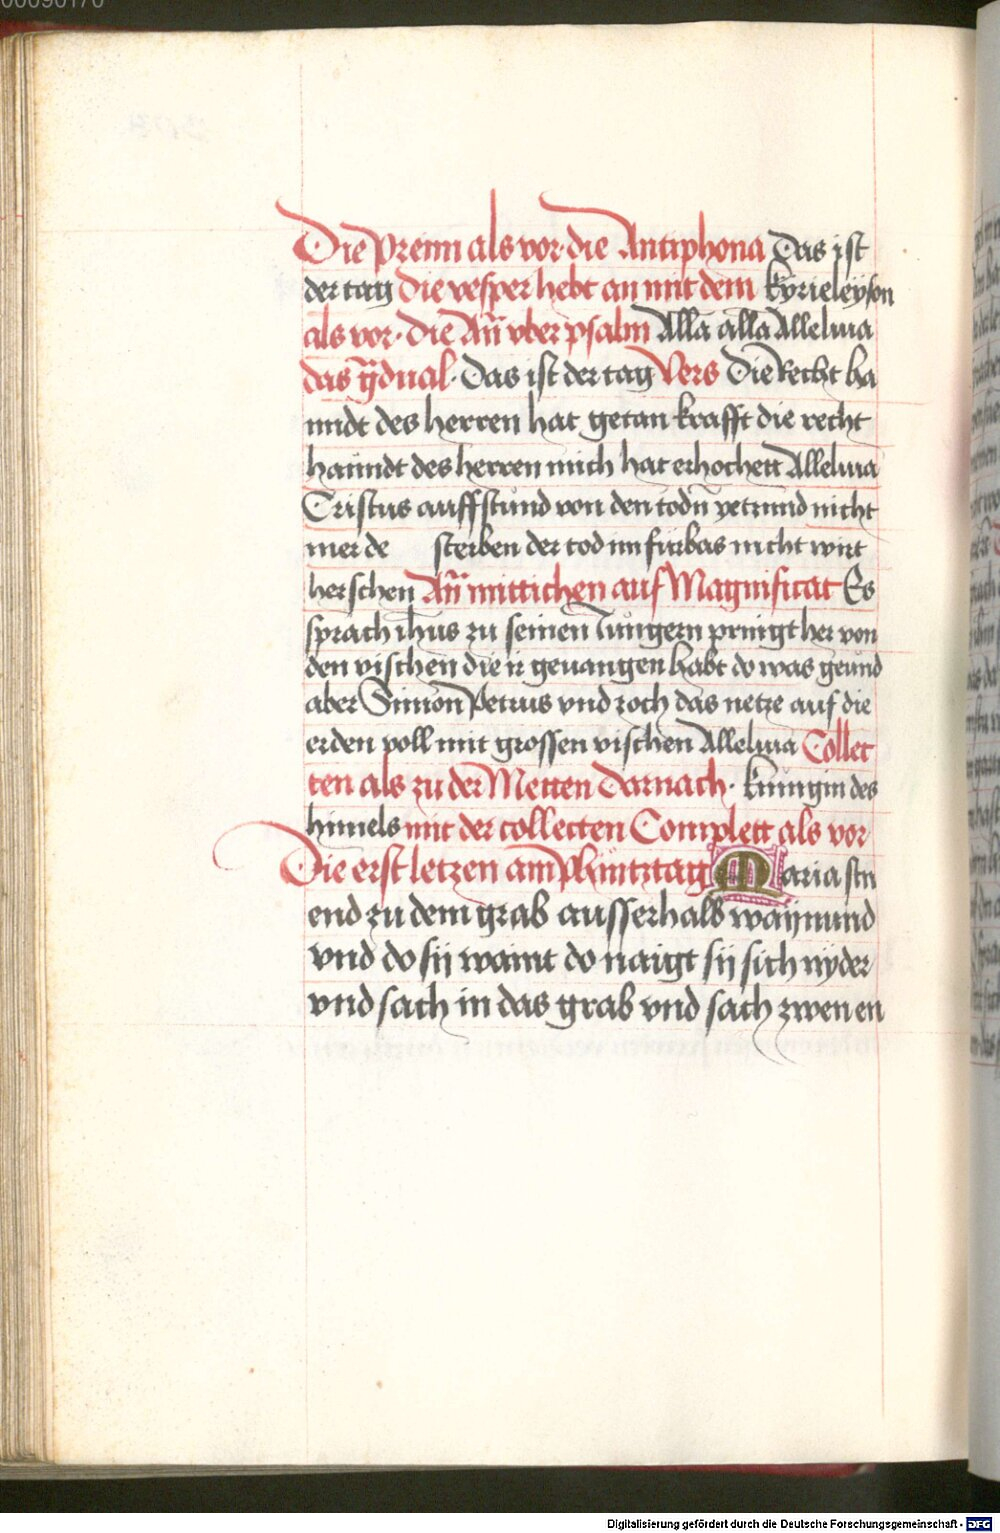 00090170
Die Prenn als vor· die Antiphona Das ist
der tag Die vesper hebt an mit dem kyrieleyson
als vor· Die An̄ vber psalm Alla alla Alleluia
das g̃dual· Das ist der tag Vers Die Recht ha
nndt des herren hat getan krafft die recht
haundt des herren mich hat erhochett Alleluia
Cristus auffstŭnd von den todn̄ yetzund nicht
mer de sterben der tod im fŭrbas nicht wirt
herschen An̄ mittichen auf Magnificat Es
sprach ih̄us zu seinen Iŭngern prinngt her von
den vischen die ir geuangen habt do was
aber Simon Petrus vnd zoch das netze auf die
erden voll mit grossen vischen Alleluia Collec
ten als zu der Metten Darnach· kunigin des
himels mit der collecten Complett als vor
Die erst letzen am Phintztag Maria stn
end zu dem grab ausserhalb waynund
vnd do sij waint do naigt sij sich nyder
vnd sach in das grab vnd sach zwen en
Digitalisierung gefördert durch die Deutsche Forschungsgemeinschaft - DFG